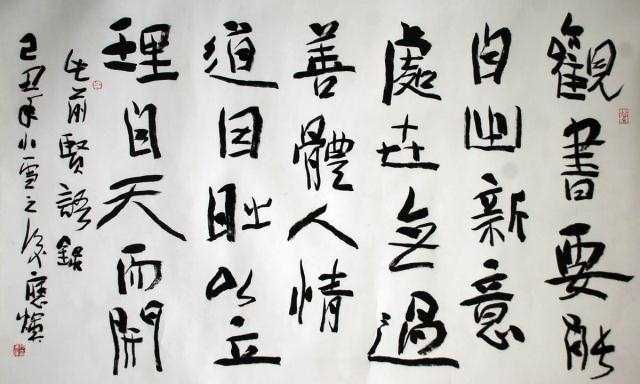 觀書要能
自出新意
處世無過
善體人情
道因時以立
理自天而開
前賢語錄
己丑年小雪之後應